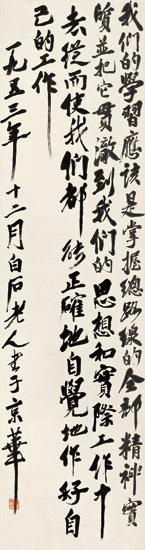 我們的學習應該是掌握總路線的全部精神實
質並把它貫澈到我們的思想和實際工作中
去從而使我們都能正確地自覺地作好自
己的工作
一九五三年十二月白石老人书于京華